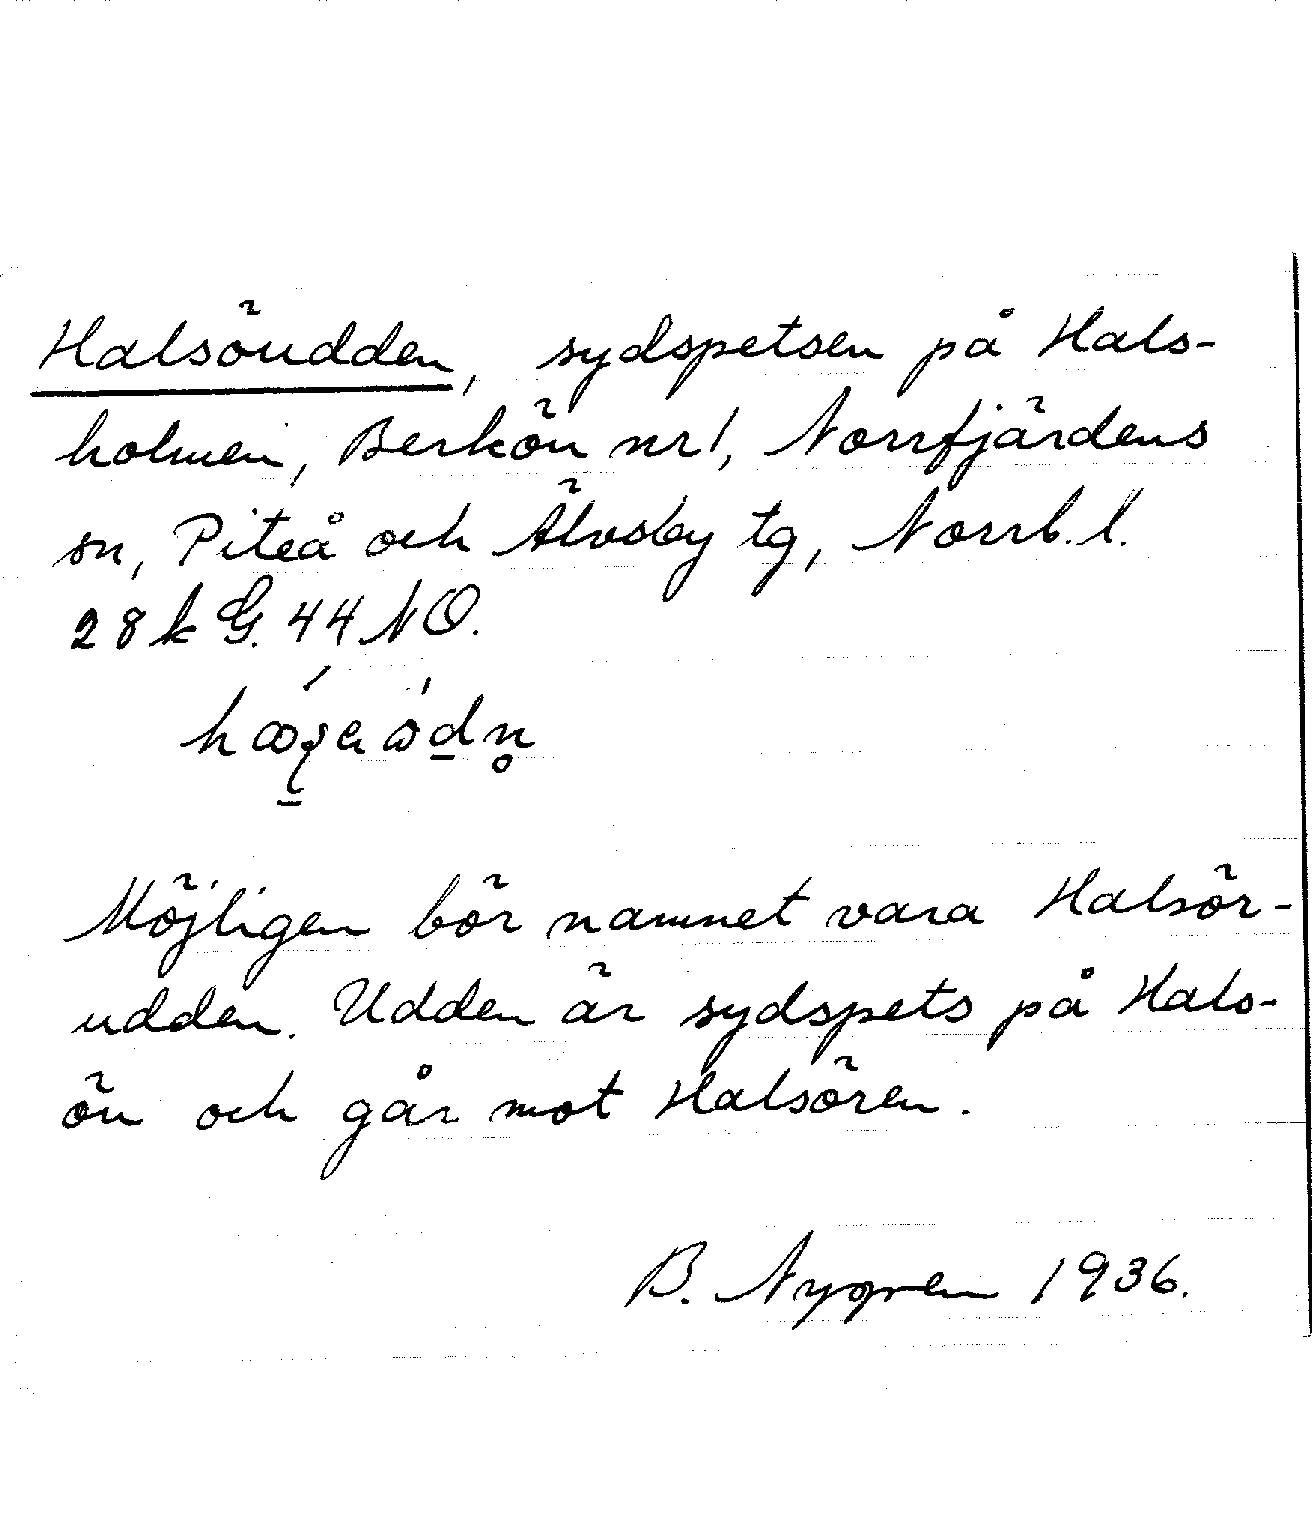 Halsöudden, sydspetsen på Hals-
holmen, Berkön nr 1, Norrfjärdens
sn, Piteå och Älvsby tg, Norrb. l.
28 k G. 44 NO.
Möjligen bör namnet vara Halsör-
udden. Udden är sydspets på Hals-
ön och går mot Halsören.
B. Nygren 1936.